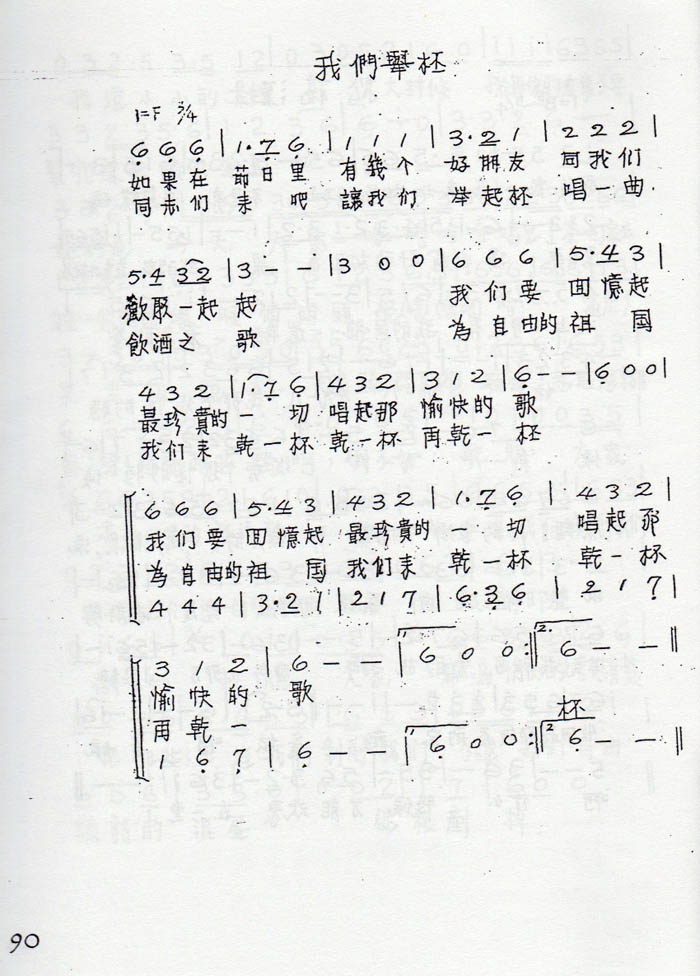 我們舉杯
1=F 3/4
6 6 6 | 1·7 6 | 1 1 1 | 3·2 1 | 2 2 2 |
如果在 節日里 有幾个 好朋友 同我们
同志们 来吧 讓我们 举起杯 唱一曲
5·4 32 | 3 - - | 3 0 0 | 6 6 6 | 5·4 3 |
歡聚一起 起 我们要 回憶起
飲酒之 歌 為自由的祖国
4 3 2 | 1·7 6 | 4 3 2 | 3 1 2 | 6 - - | 6 0 0 |
最珍貴的一切 唱起那 愉快的 歌
我们来 乾一杯 乾一杯 再乾一 杯
6 6 6 | 5·4 3 | 4 3 2 | 1·7 6 | 4 3 2 |
我们要 回憶起 最珍貴的一切 唱起那
為自由的祖国 我们来 乾一杯 乾一杯
4 4 4 | 3·2 1 | 2 1 7 | 6·3 6 | 2 1 7 |
3 1 2 | 6 - - | 1. 6 0 0 :| 2. 6 - - ||
愉快的 歌
再乾一 杯
1 6 7 | 6 - - | 1. 6 0 0 :| 2. 6 - - ||
90